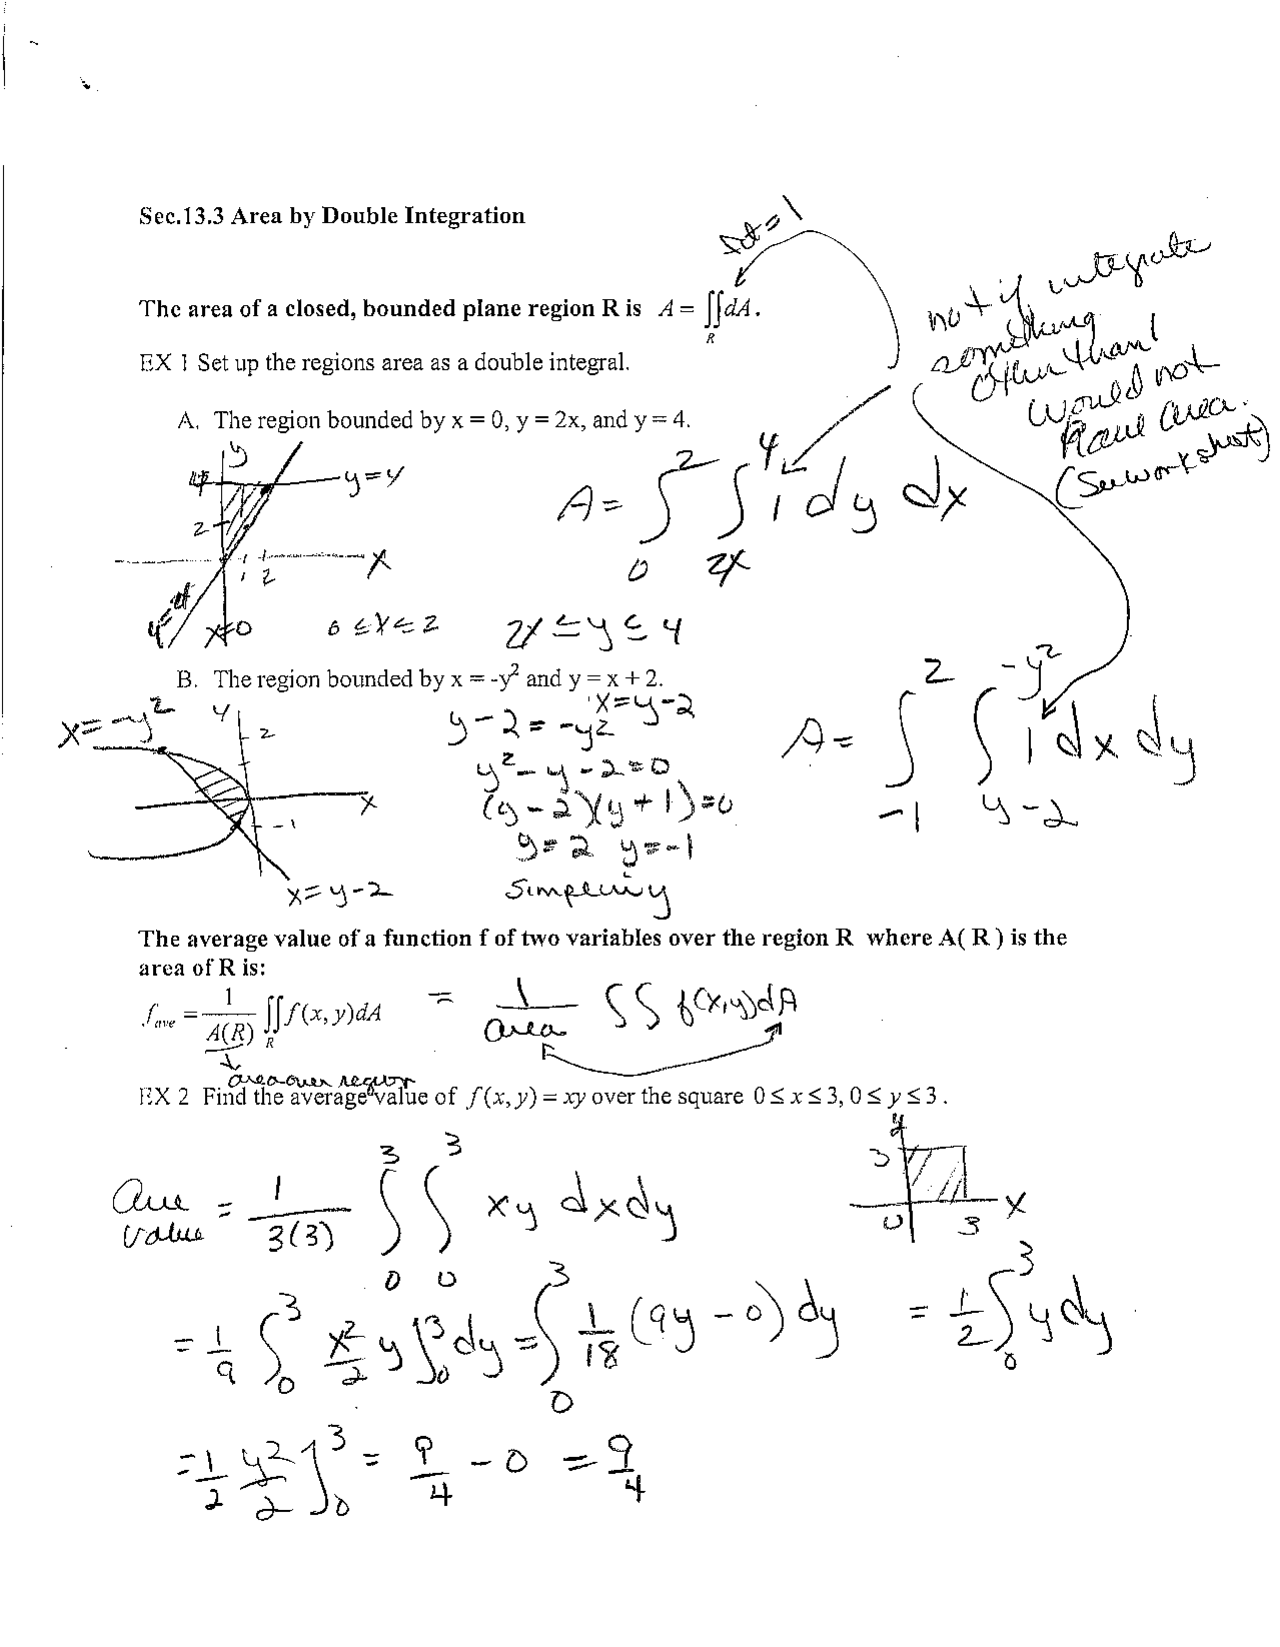 Sec.13.3 Area by Double Integration
ht=1
The area of a closed, bounded plane region R is A = ∬_R dA.
not if integrate
something
other than 1
would not
have area.
(See worksheet)
EX 1 Set up the regions area as a double integral.
A. The region bounded by x = 0, y = 2x, and y = 4.
y
4
y=4
2
x
1 2
x=0
A = ∫_0^2 ∫_{2x}^4 1 dy dx
0 ≤ x ≤ 2 2x ≤ y ≤ 4
B. The region bounded by x = -y² and y = x + 2.
x = -y²
y
2
x
-1
x = y-2
x = y-2
y-2 = -y²
y²-y-2=0
(y-2)(y+1)=0
y=2 y=-1
A = ∫_{-1}^2 ∫_{y-2}^{-y²} 1 dx dy
The average value of a function f of two variables over the region R where A( R ) is the
area of R is:
f_ave = 1/A(R) ∬_R f(x, y)dA = 1/area ∫∫ f(x,y)dA
area over region
EX 2 Find the average value of f(x, y) = xy over the square 0 ≤ x ≤ 3, 0 ≤ y ≤ 3.
y
3
x
0 3
Ave value = 1/3(3) ∫_0^3 ∫_0^3 xy dxdy
= 1/9 ∫_0^3 x²/2 y]_0^3 dy = ∫_0^3 1/18 (9y-0) dy = 1/2 ∫_0^3 y dy
= 1/2 y²/2 ]_0^3 = 9/4 - 0 = 9/4